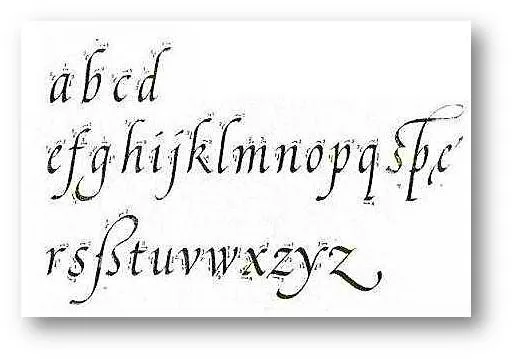 a b c d
e f g h i j k l m n o p q
r s ß t u v w x z y z